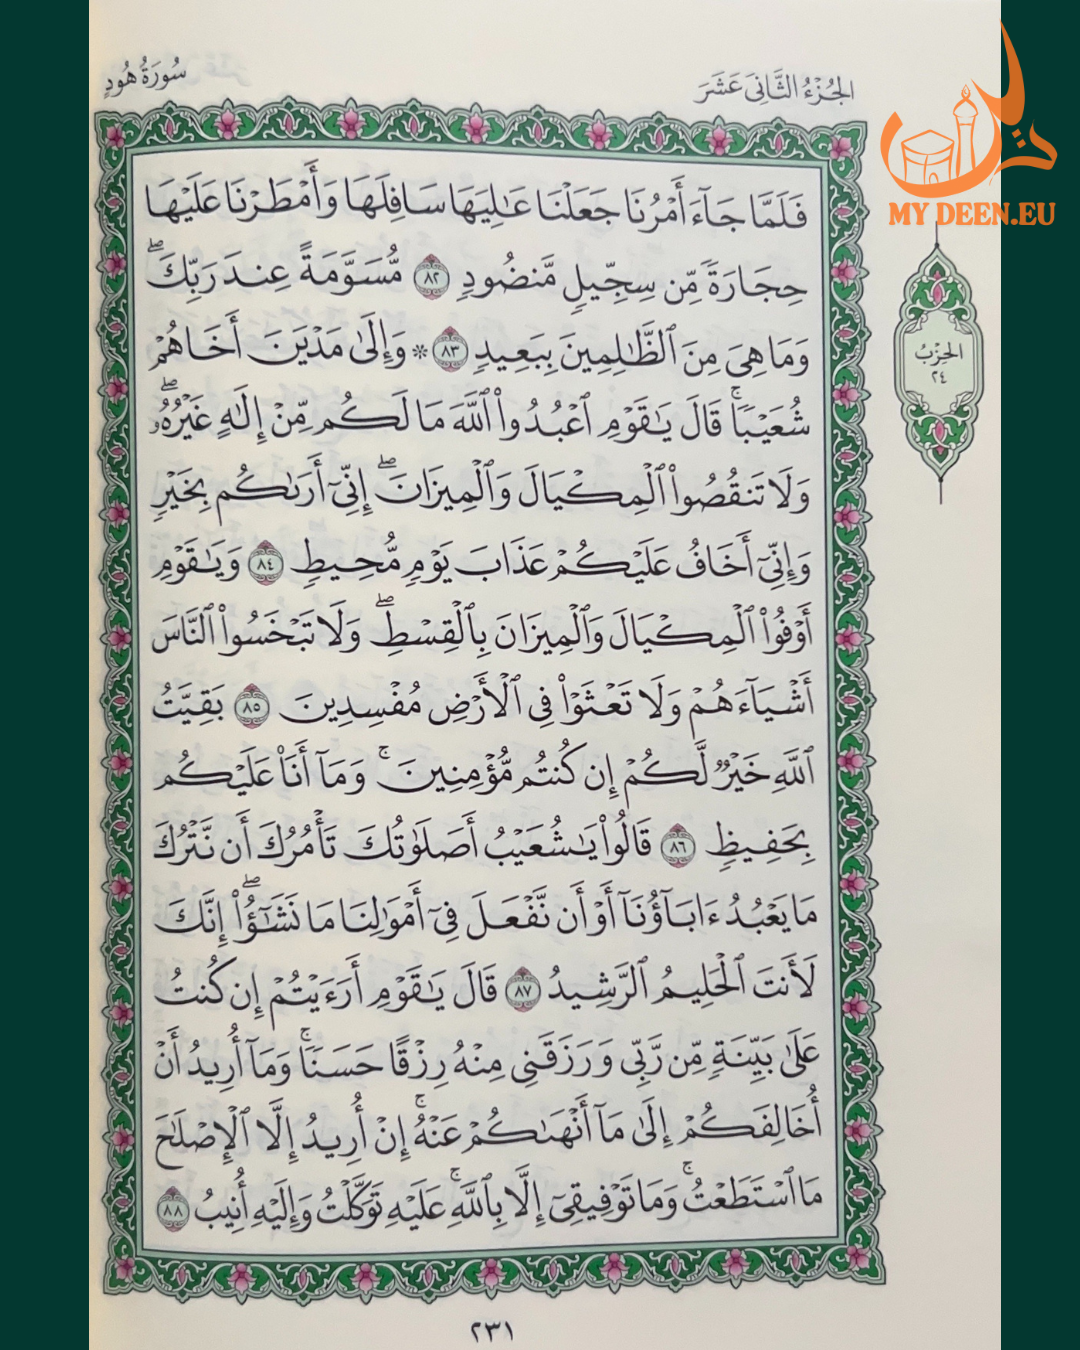 سُورَةُ هُودٍ
الجُزْءُ الثَّانِيَ عَشَرَ
MY DEEN.EU
فَلَمَّا جَآءَ أَمْرُنَا جَعَلْنَا عَٰلِيَهَا سَافِلَهَا وَأَمْطَرْنَا عَلَيْهَا
حِجَارَةً مِّن سِجِّيلٍ مَّنضُودٍ ٨٢ مُّسَوَّمَةً عِندَ رَبِّكَۖ
وَمَا هِيَ مِنَ ٱلظَّٰلِمِينَ بِبَعِيدٍ ٨٣ ۞ وَإِلَىٰ مَدْيَنَ أَخَاهُمْ
شُعَيْبًاۚ قَالَ يَٰقَوْمِ ٱعْبُدُوا۟ ٱللَّهَ مَا لَكُم مِّنْ إِلَٰهٍ غَيْرُهُۥۖ
وَلَا تَنقُصُوا۟ ٱلْمِكْيَالَ وَٱلْمِيزَانَۖ إِنِّىٓ أَرَىٰكُم بِخَيْرٍ
وَإِنِّىٓ أَخَافُ عَلَيْكُمْ عَذَابَ يَوْمٍ مُّحِيطٍ ٨٤ وَيَٰقَوْمِ
أَوْفُوا۟ ٱلْمِكْيَالَ وَٱلْمِيزَانَ بِٱلْقِسْطِۖ وَلَا تَبْخَسُوا۟ ٱلنَّاسَ
أَشْيَآءَهُمْ وَلَا تَعْثَوْا۟ فِى ٱلْأَرْضِ مُفْسِدِينَ ٨٥ بَقِيَّتُ
ٱللَّهِ خَيْرٌ لَّكُمْ إِن كُنتُم مُّؤْمِنِينَۚ وَمَآ أَنَا۠ عَلَيْكُم
بِحَفِيظٍ ٨٦ قَالُوا۟ يَٰشُعَيْبُ أَصَلَوٰتُكَ تَأْمُرُكَ أَن نَّتْرُكَ
مَا يَعْبُدُ ءَابَآؤُنَآ أَوْ أَن نَّفْعَلَ فِىٓ أَمْوَٰلِنَا مَا نَشَٰٓؤُا۟ۖ إِنَّكَ
لَأَنتَ ٱلْحَلِيمُ ٱلرَّشِيدُ ٨٧ قَالَ يَٰقَوْمِ أَرَءَيْتُمْ إِن كُنتُ
عَلَىٰ بَيِّنَةٍ مِّن رَّبِّى وَرَزَقَنِى مِنْهُ رِزْقًا حَسَنًاۚ وَمَآ أُرِيدُ أَنْ
أُخَالِفَكُمْ إِلَىٰ مَآ أَنْهَىٰكُمْ عَنْهُۚ إِنْ أُرِيدُ إِلَّا ٱلْإِصْلَٰحَ
مَا ٱسْتَطَعْتُۚ وَمَا تَوْفِيقِىٓ إِلَّا بِٱللَّهِۚ عَلَيْهِ تَوَكَّلْتُ وَإِلَيْهِ أُنِيبُ ٨٨
الحِزْبُ
٢٤
٢٣١